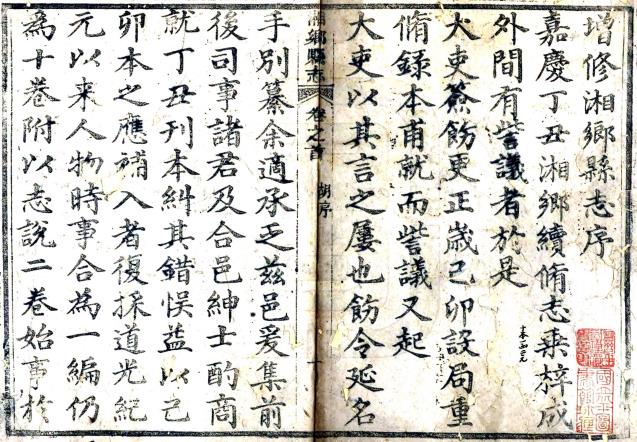 增修湘鄉縣志序
嘉慶丁丑湘鄉續脩志乘梓成
外間有訾議者於是
大吏簽飭更正歲己卯設局重
脩錄本甫就而訾議又起
大吏以其言之屢也飭令延名
湘鄉縣志
卷之首
胡序
一
手別纂余適承乏茲邑爰集前
後司事諸君及合邑紳士酌商
就丁丑刊本糾其錯悞益以己
卯本之應補入者復採道光紀
元以来人物時事合為一編仍
為十卷附以志說二卷始事於